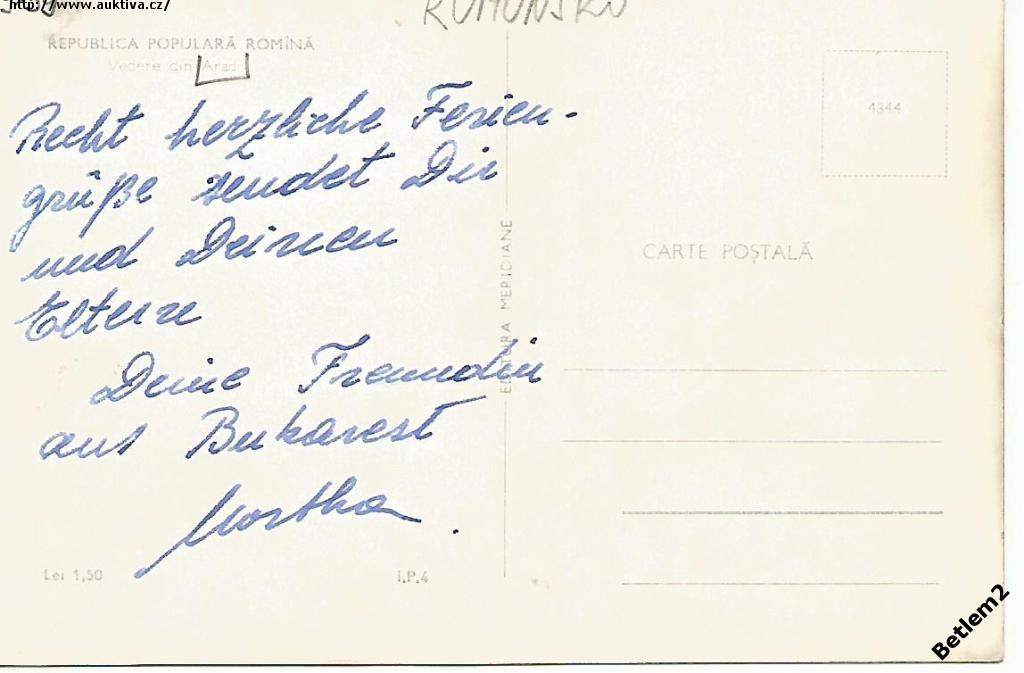 http://www.auktiva.cz/
RUMUNSKO
REPUBLICA POPULARĂ ROMÎNĂ
Vedere din Arad
Recht herzliche Ferien-
grüße sendet Dir
und Deinen
Eltern
Deine Freundin
aus Bukarest
Lei 1,50
I.P.4
EDITURA MERIDIANE
4844
CARTE POȘTALĂ
Betlem2